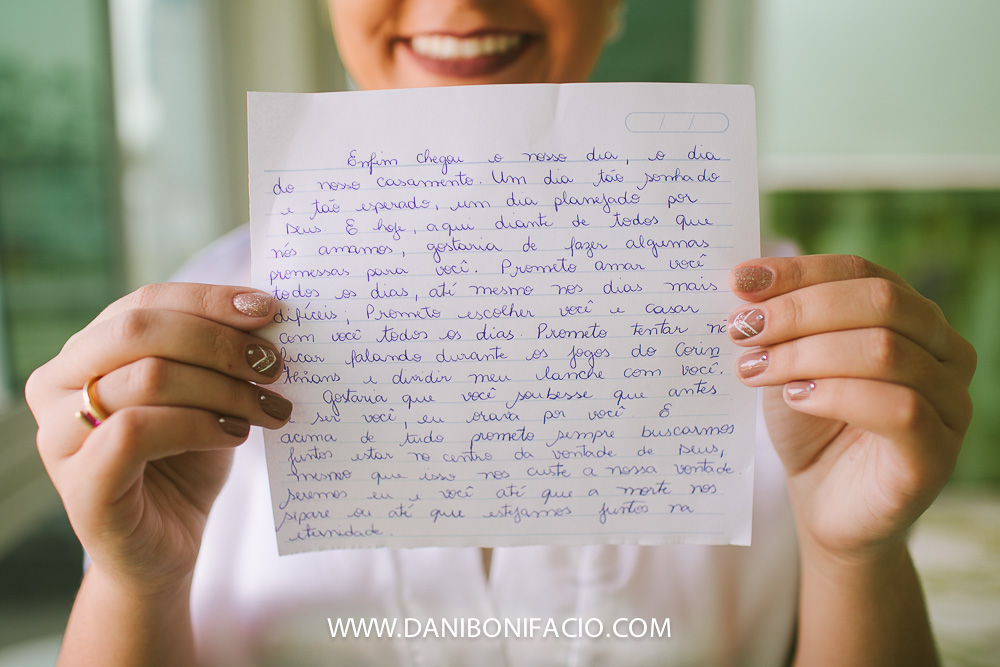 / /
Enfim chegou o nosso dia, o dia
do nosso casamento. Um dia tão sonhado
e tão esperado, um dia planejado por
Deus. E hoje, aqui diante de todos que
nós amamos, gostaria de fazer algumas
promessas para você. Prometo amar você
todos os dias, até mesmo nos dias mais
difíceis; Prometo escolher você e casar
com você todos os dias. Prometo tentar não
ficar falando durante os jogos do Corin
thians e dividir meu lanche com você.
Gostaria que você soubesse que antes
ser você, eu orava por você. E
acima de tudo prometo sempre buscarmos
juntos estar no centro da vontade de Deus,
mesmo que isso nos custe a nossa vontade.
Seremos eu e você até que a morte nos
separe ou até que estejamos juntos na
eternidade.
WWW.DANIBONIFACIO.COM